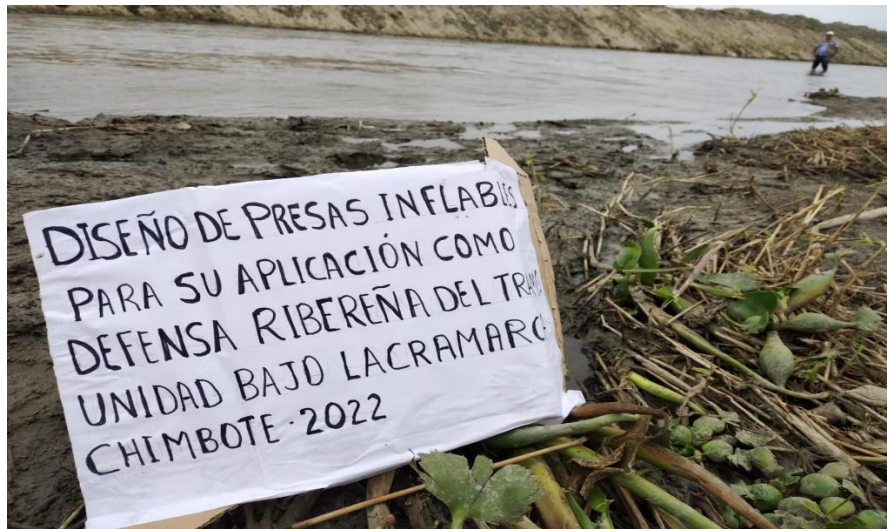 DISEÑO DE PRESAS INFLABLES
PARA SU APLICACIÓN COMO
DEFENSA RIBEREÑA DEL TRAMO
UNIDAD BAJO LACRAMARCA
CHIMBOTE - 2022